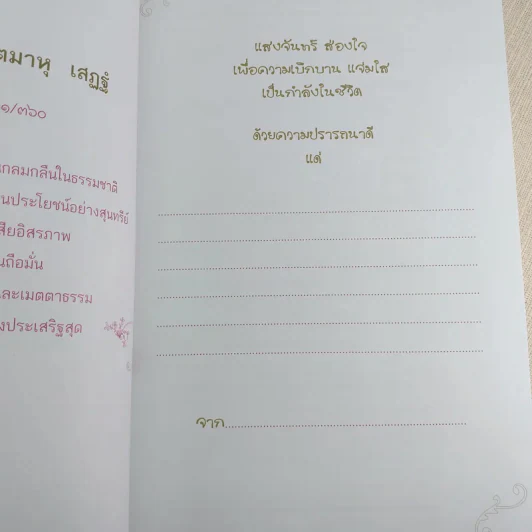 ตมาหุ เสฏฐํ
๑/๓๖๐
กลมกลืนในธรรมชาติ
นประโยชน์อย่างสุนทรีย์
สียอิสรภาพ
นถือมั่น
และเมตตาธรรม
งประเสริฐสุด
แสงจันทร์ ส่องใจ
เพื่อความเบิกบาน แจ่มใส
เป็นกำลังในชีวิต
ด้วยความปรารถนาดี
แด่
จาก